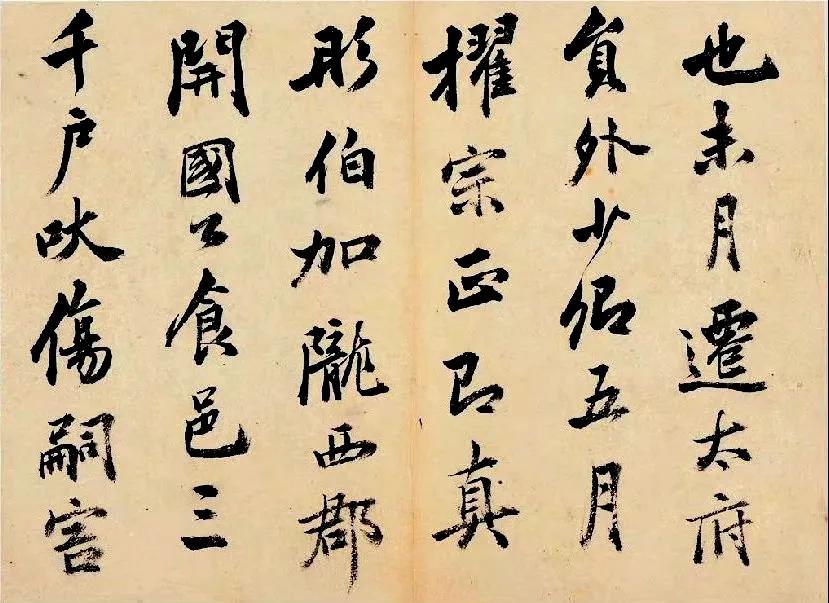 也未月遷太府
貟外少卿五月
擢宗正即真
彤伯加隴西郡
開國公食邑三
千戶吠傷嗣害